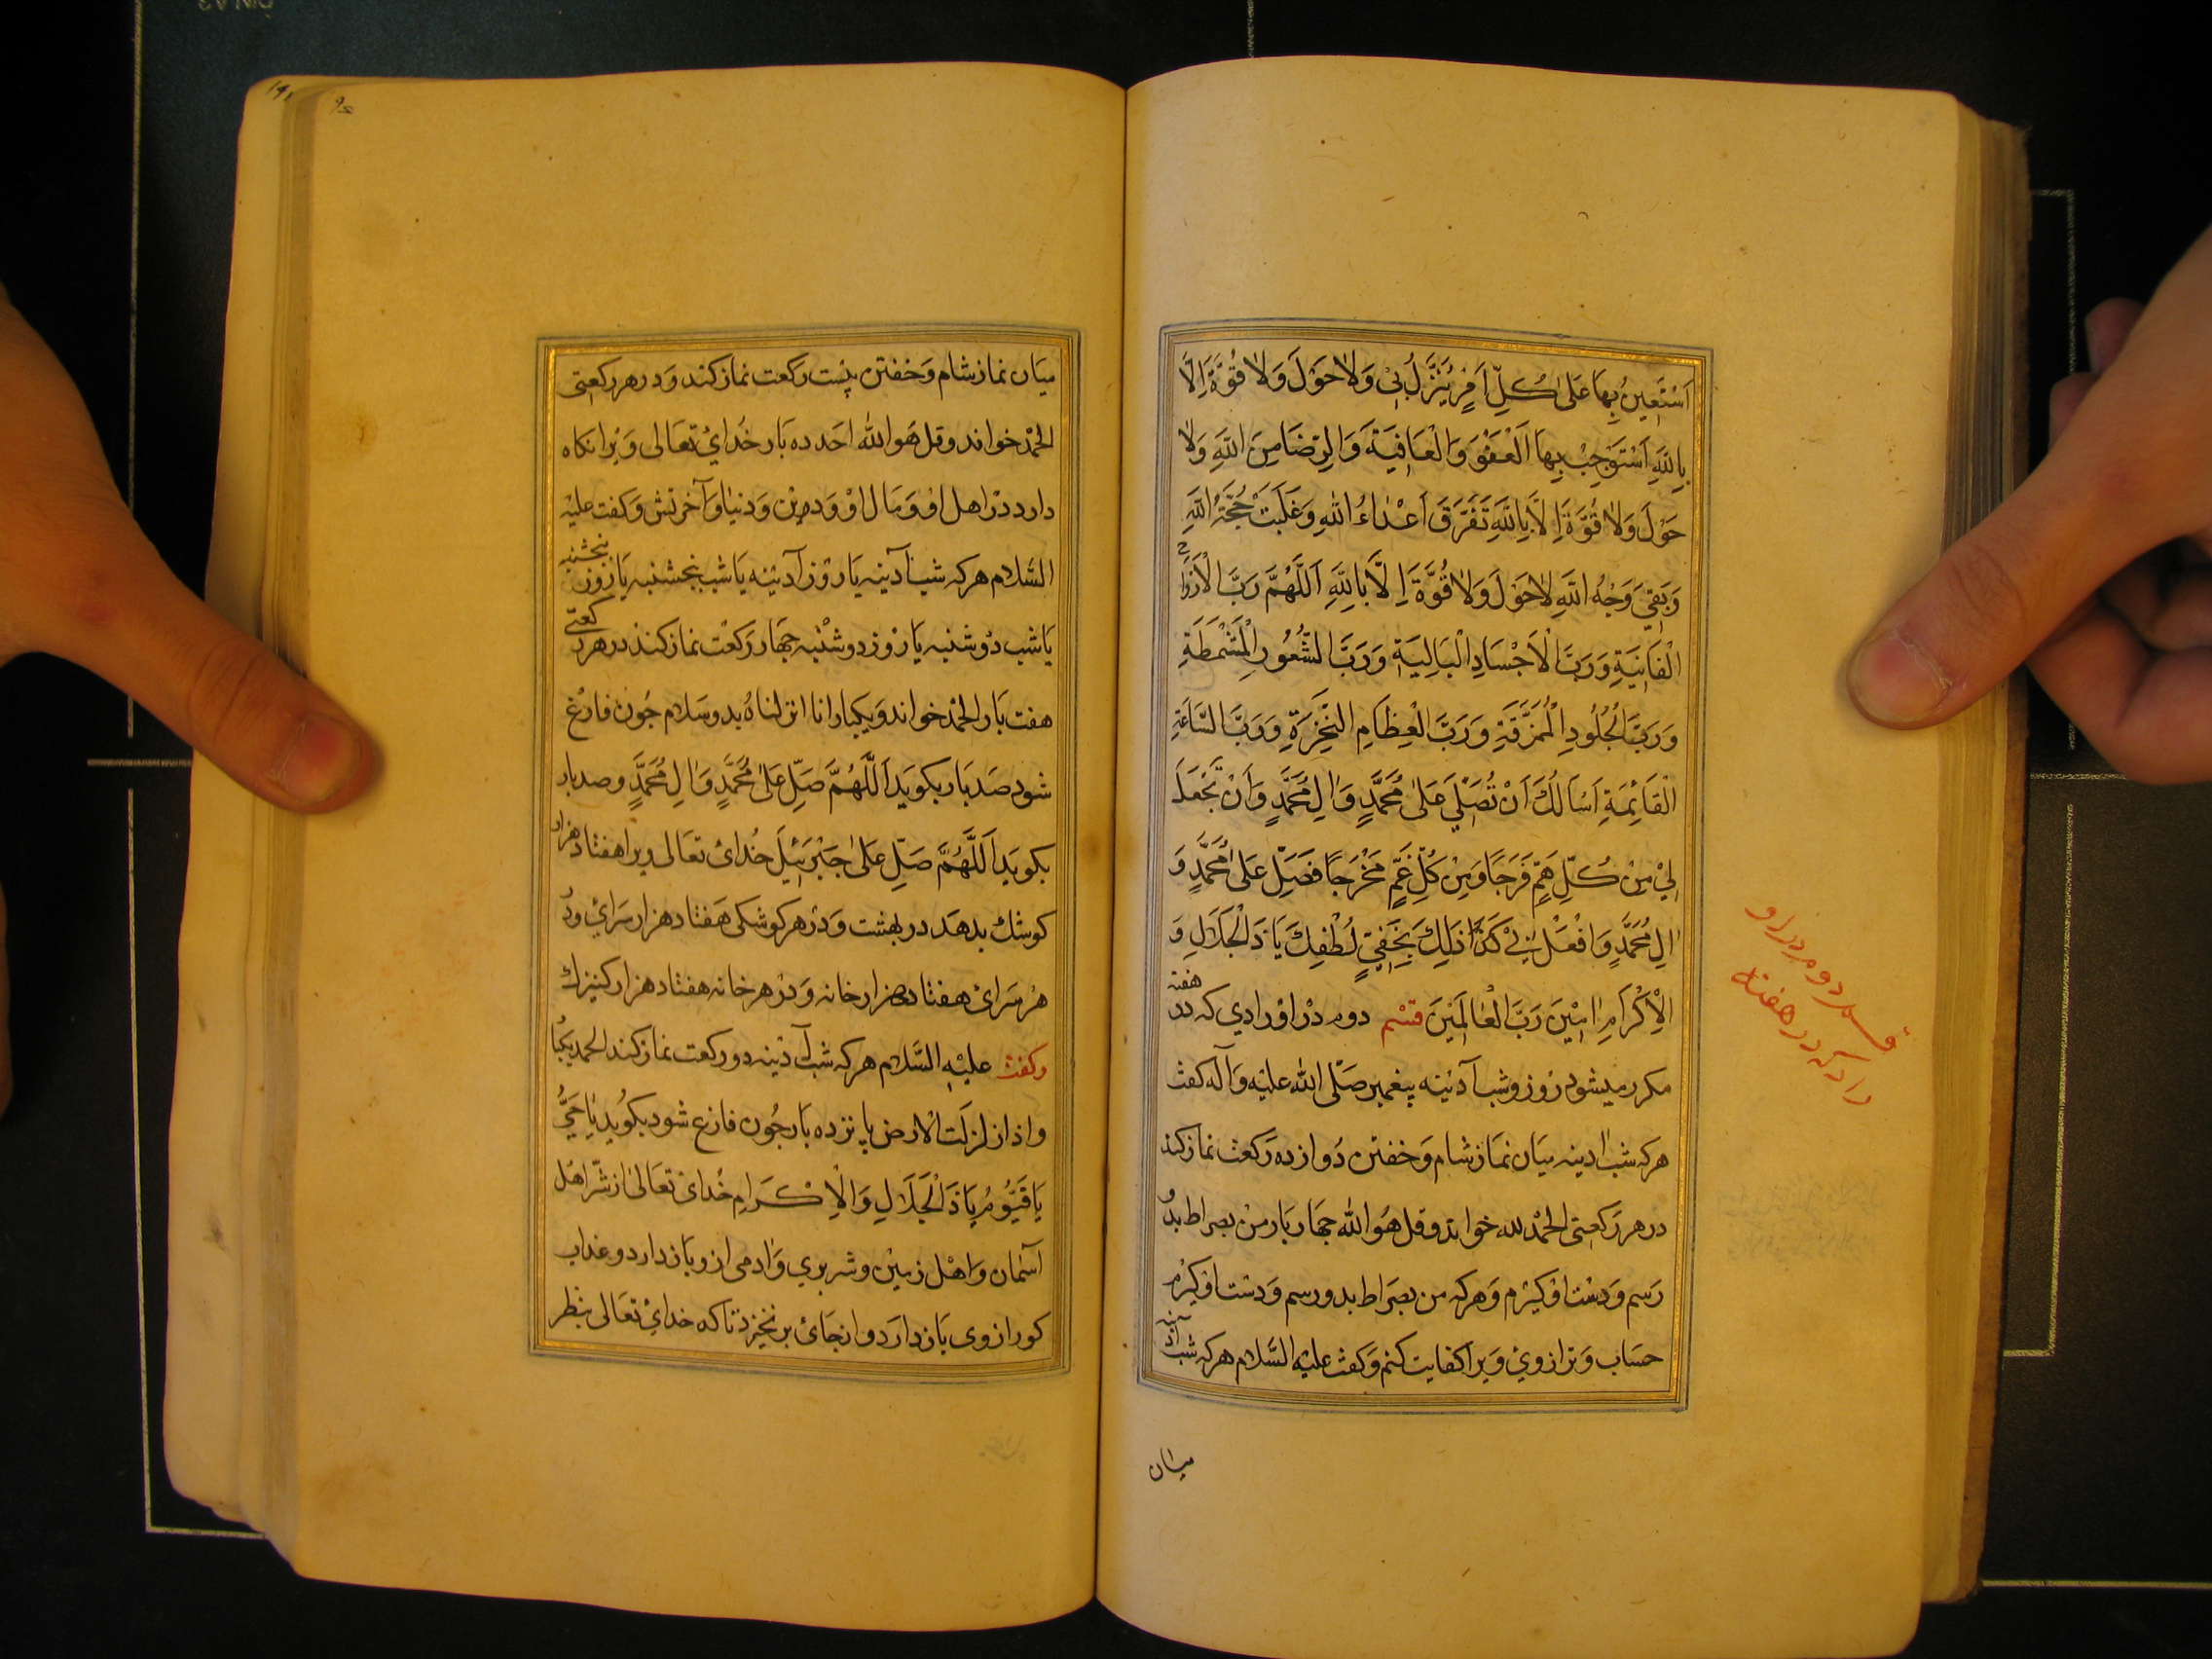 اَسْتَعِينُ بِهَا عَلىٰ كُلِّ اَمْرٍ يَنْزِلُ بِي وَلاٰ حَوْلَ وَلاٰ قُوَّةَ اِلَّا
بِاللَّهِ اَسْتَوْجِبُ بِهَا الْعَفْوَ وَالْعَافِيَةَ وَالرِّضَا مِنَ اللَّهِ وَلاٰ
حَوْلَ وَلاٰ قُوَّةَ اِلاَّ بِاللَّهِ تَفَرَّقَ اَعْدَاءُ اللهِ وَغَلَبَتْ حُجَّةُ اللَّهِ
وَبَقِيَ وَجْهُ اللَّهِ لاٰ حَوْلَ وَلاٰ قُوَّةَ اِلَّا بِاللَّهِ اَللَّهُمَّ رَبَّ الْاَرْوَاحِ
الْفَانِيَةِ وَرَبَّ الْاَجْسَادِ الْبَالِيَةِ وَرَبَّ الشُّعُورِ الْمُتَمَعِّطَةِ
وَرَبَّ الْجُلُودِ الْمُمَزَّقَةِ وَرَبَّ الْعِظَامِ النَّخِرَةِ وَرَبَّ السَّاعَةِ
الْقَائِمَةِ اَسْاَلُكَ اَنْ تُصَلِّيَ عَلىٰ مُحَمَّدٍ وَاٰلِ مُحَمَّدٍ وَاَنْ تَجْعَلَ
لِيْ مِنْ كُلِّ هَمٍّ فَرَجًا وَمِنْ كُلِّ غَمٍّ مَخْرَجًا فَصَلِّ عَلىٰ مُحَمَّدٍ وَ
اٰلِ مُحَمَّدٍ وَافْعَلْ بِيْ كَذَا ذٰلِكَ بِخَفِيِّ لُطْفِكَ يَا ذَالْجَلَالِ وَ
الْاِكْرَامِ اٰمِيْنَ رَبَّ الْعٰالَمِيْنَ قسْم دوم دْر اوْرادي كه در هفته
مكرر ميشود رُوز وشب آدينه پيغمبر صَلّى الله عليْه وَآله كفت
هركه شب اٰدينه ميَان نمَاز شام وَخفتن دُوازده رَكعت نماز كند
در هر رَكعتى الحمْد لله خواند وقل هُو الله جهَار بَار من بصراط بدُو
رَسم وَدسْت اوْ كيرْم وَهركه من بصَراط بدو رسم وَدسْت اوْ كيرْم
حسَاب وَترازوي وَيرا كفايت كنم وَكفت عليْه السَّلام هركه شب آدينه
ميان
قسم دوم در او
راد كه در هفته
۱۴۱
ميَان نماز شام وَخفتن بيْست رَكعت نماز كند وَدر هر ركعتى
الحمْد خواند وقل هَو الله احَد ده بَار خُدايْ تعَالى وَيْرا نكاه
دارد دْر اهل اوْ وَمَال اوْ وَدين وَدنيٰا وَآخرتش وَكفت عليْه
السَّلام هركه شب آدينه يَا روْز آدينه يَا شب پنجشنبه يَا روز پنجشنبه
يَا شب دوْشنبه يَا رْوز دوشنْبه جهَار رَكعْت نماز كند در هر ركعتى
هفت بَار الحمْد خواند وَيكبار انا انزلناهُ بدو سَلام جُون فارغ
شود صَد بَار بكويَد اَللَّهُمَّ صَلِّ عَلىٰ مُحَمَّدٍ وَاٰلِ مُحَمَّدٍ وصد بار
بكويَد اَللَّهُمَّ صَلِّ عَلىٰ جَبْرَئِيْلَ خُداىْ تعَالى ويرا هفتاد هزار
كوشك بدهَد در بهشت وَدْر هر كوشكى هَفتاد هزار سَراىْ ودر
هر سَراىْ هَفتاد هزار خانه وَدْر هر خانه هفتاد هزار كنيزك
وكفت عليْهِ السَّلام هركه شب آدْينه دو ركعت نماز كند الحمد يكبَار
واذا زلزلَت الْارض پانزده بَار جُون فارغ شود بكُويد يٰا حَيُّ
يَا قَيُّوْمُ يَا ذَالْجَلَالِ وَالْاِكْرَامِ خُداىْ تعَالىٰ از شَرّ اهْل
آسْمان وَاهْل زمينْ وشر پري وَاٰدمى ازو بَاز دارد وعذاب
كور ازوى بَاز دارَد واز جَاىْ برنخيزد تا كه خداىْ تعَالى بنظر